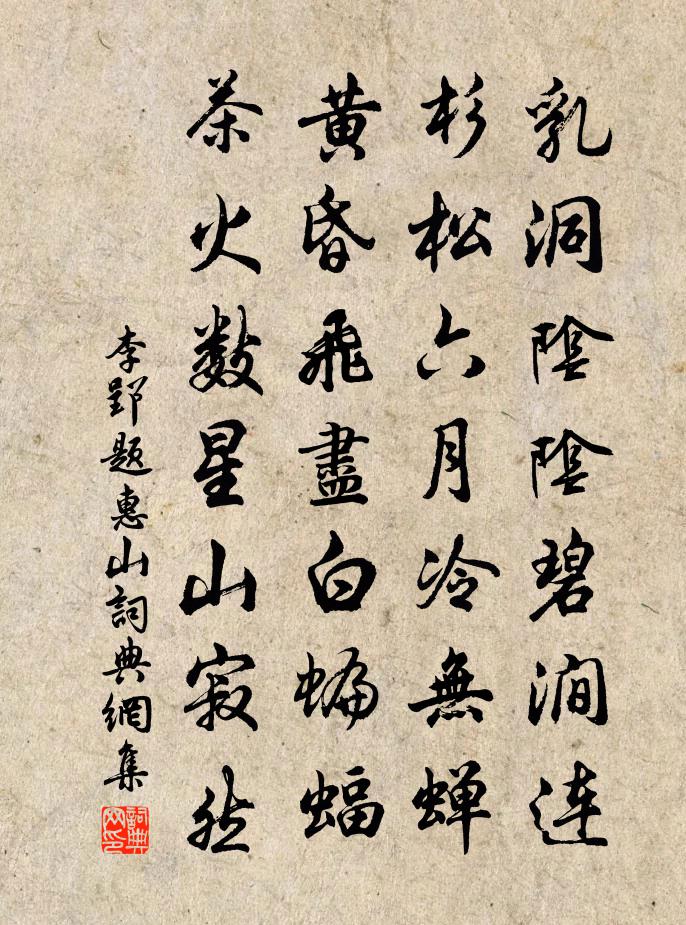 乳洞陰陰碧澗連
杉松六月冷無蟬
黃昏飛盡白蝙蝠
茶火數星山寂然
李郢題惠山詞典網集
詞典网印